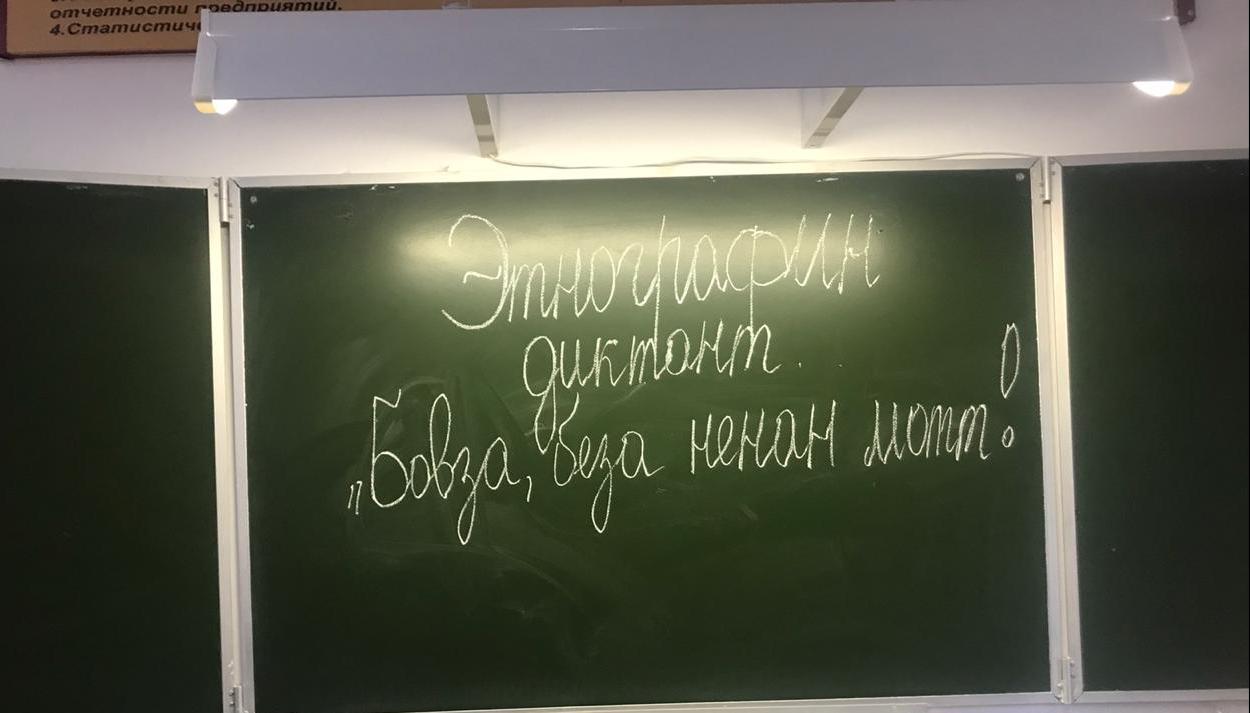 отчетности предприятий.
4.Статистиче
Этнографин
диктант.
„Бовза, беза ненан мотт!